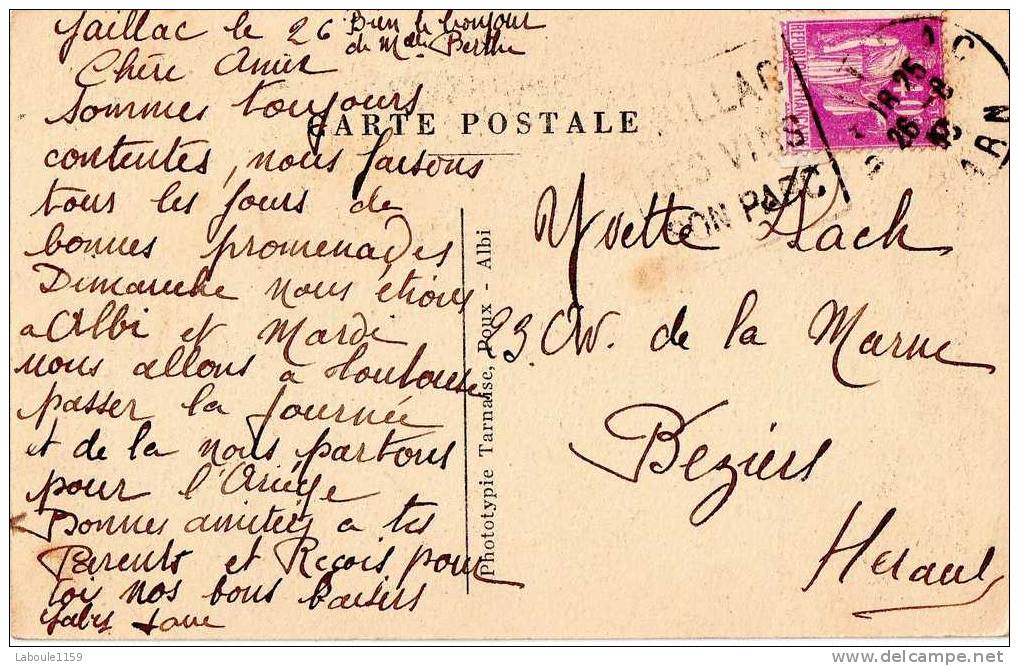 Gaillac le 26
Bien le bonjour
de Mme Berthe
Chère Amie
Sommes toujours
contentes, nous faisons
tous les jours de
bonnes promenades
Dimanche nous étions
a Albi et Mardi
nous allons a Toulouse
passer la journée
et de la nous partons
pour l'Ariége
Bonnes amitiés a tes
Parents et Reçois pour
toi nos bons baisers
CARTE POSTALE
Phototypie Tarnaise, Poux - Albi
REPUBLIQUE FRANÇAISE
GAILLAC
SES VINS
SON PARC
18 25
26 -8
TARN
Yvette Flach
93 Av. de la Marne
Beziers
Herault
Laboule1159
www.delcampe.net